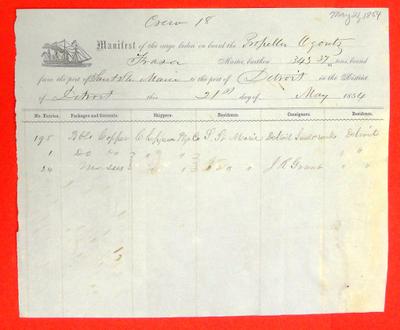 Crew 18
May 21, 1854
Manifest of the cargo laden on board the Propeller Ogontz
Frazer Master, burthen 343 37 tons, bound
from the port of Sault Ste Marie to the port of Detroit in the District
of Detroit this 21st day of May 1854
No. Entries. Packages and Contents. Shippers. Residence. Consignees. Residence.
195 Bbls Copper S. St Marie Detroit Detroit
1 Do " " " " "
24 Do J R Grout "